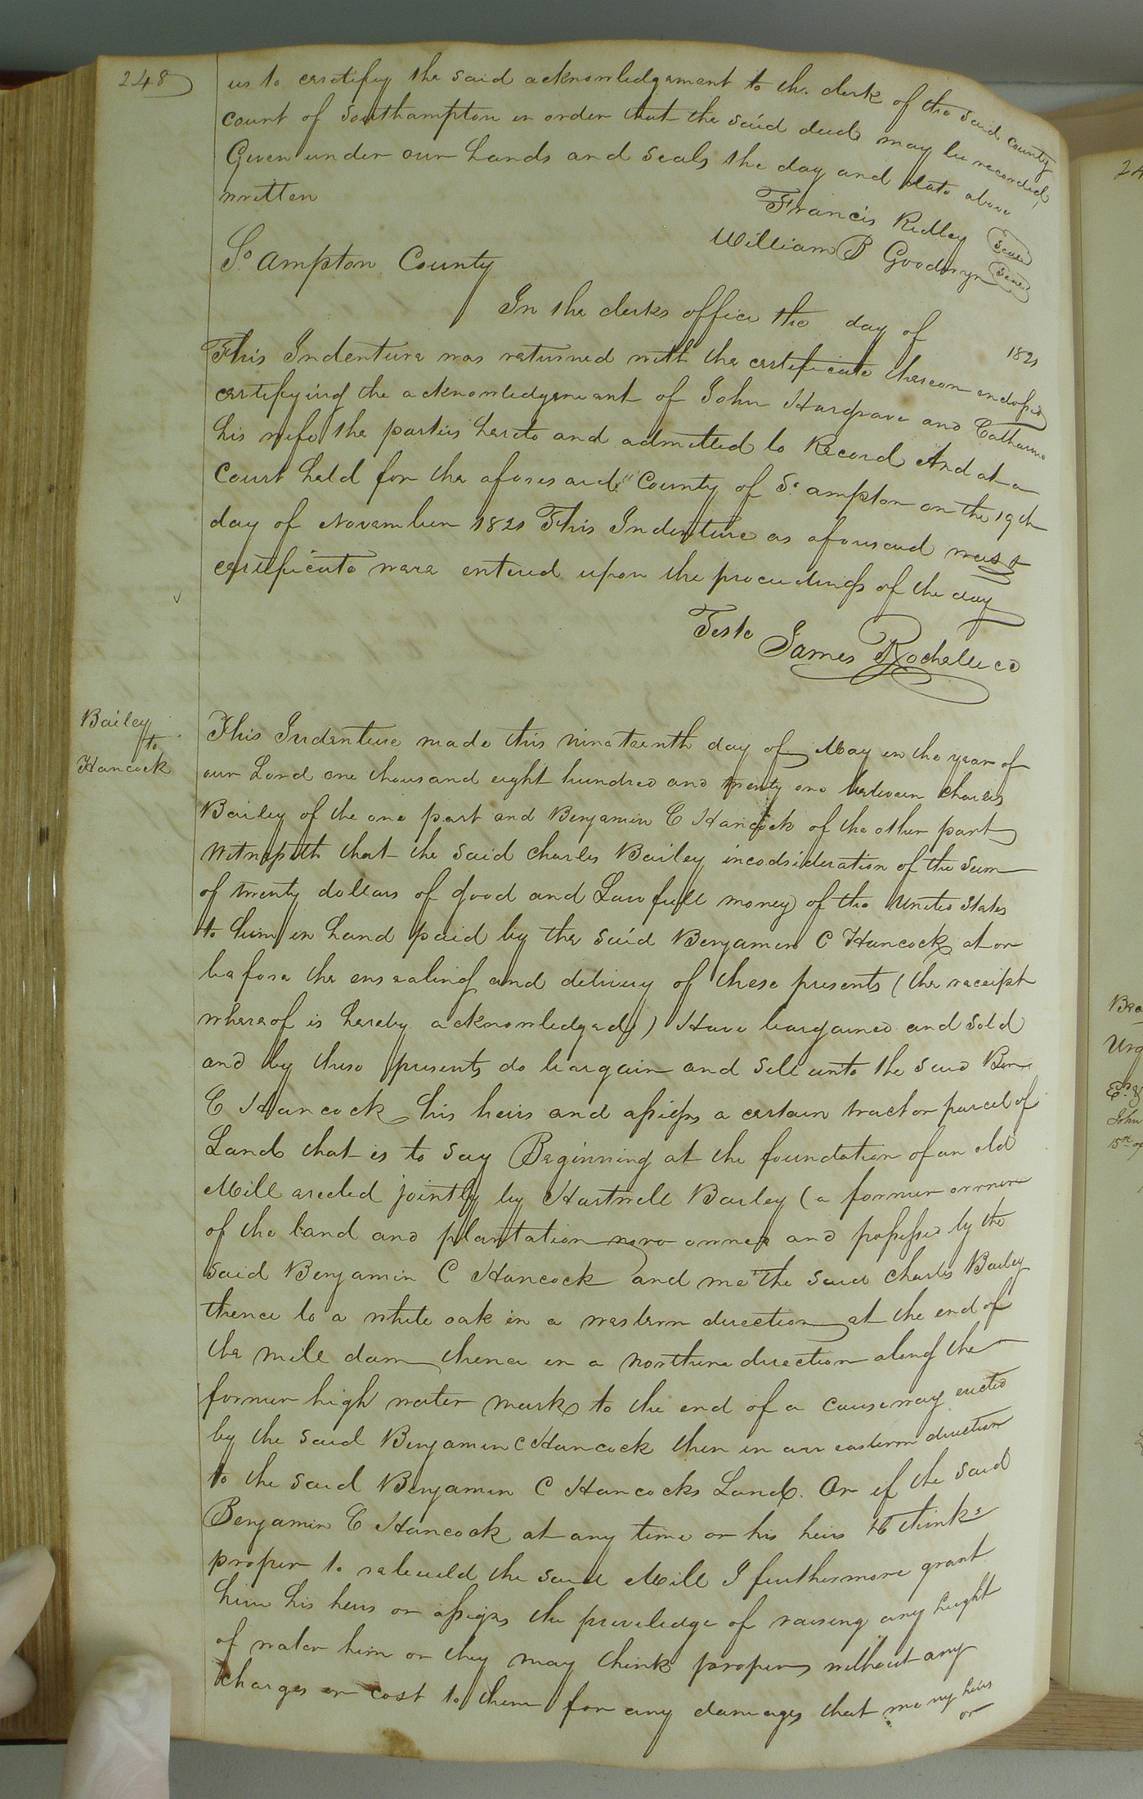 248
us to certify the said acknowledgement to the clerk of the said county
court of Southampton in order that the said deed may be recorded,
Given under our hands and seals the day and date above
written
Francis Ridley Seal
William B Goodwyn Seal
So Ampton County
In the clerks office the day of 1821
This Indenture was returned with the certificate thereon endorsed
certifying the acknowledgement of John Hargrave and Catharine
his wife the parties hereto and admitted to Record And at a
Court held for the aforesaid County of So ampton on the 19th
day of November 1821 This Indenture as aforesaid was &
certificate were entered upon the proceedings of the day
Teste James Rochelle CC
Bailey
to
Hancock
This Indenture made this nineteenth day of May in the year of
our Lord one thousand eight hundred and twenty one between Charles
Bailey of the one part and Benjamin C Hancock of the other part
Witnesseth that the said Charles Bailey incodsideration of the sum
of twenty dollars of good and Lawfull money of the United States
to him in hand paid by the said Benjamin C Hancock at or
before the ensealing and delivery of these presents (the receipt
whereof is hereby acknowledged) Have bargained and sold
and by these presents do bargain and sell unto the said Ben
C Hancock his heirs and assigns a certain tract or parcel of
Land that is to say Beginning at the foundation of an old
Mill erected jointly by Hartwell Bailey (a former owner
of the land and plantation now owned and possessed by the
said Benjamin C Hancock and me the said Charles Bailey
thence to a white oak in a western direction at the end of
the mill dam thence in a northern direction along the
former high water mark to the end of a causeway erected
by the said Benjamin C Hancock then in an eastern direction
to the said Benjamin C Hancocks Land. Or if the said
Benjamin C Hancock at any time or his heirs thinks
proper to rebuild the said Mill I furthermore grant
him his heirs or assigns the priviledge of raising any hight
of water him or they may think proper without any
charges or cost to them for any damages that me my heirs
or